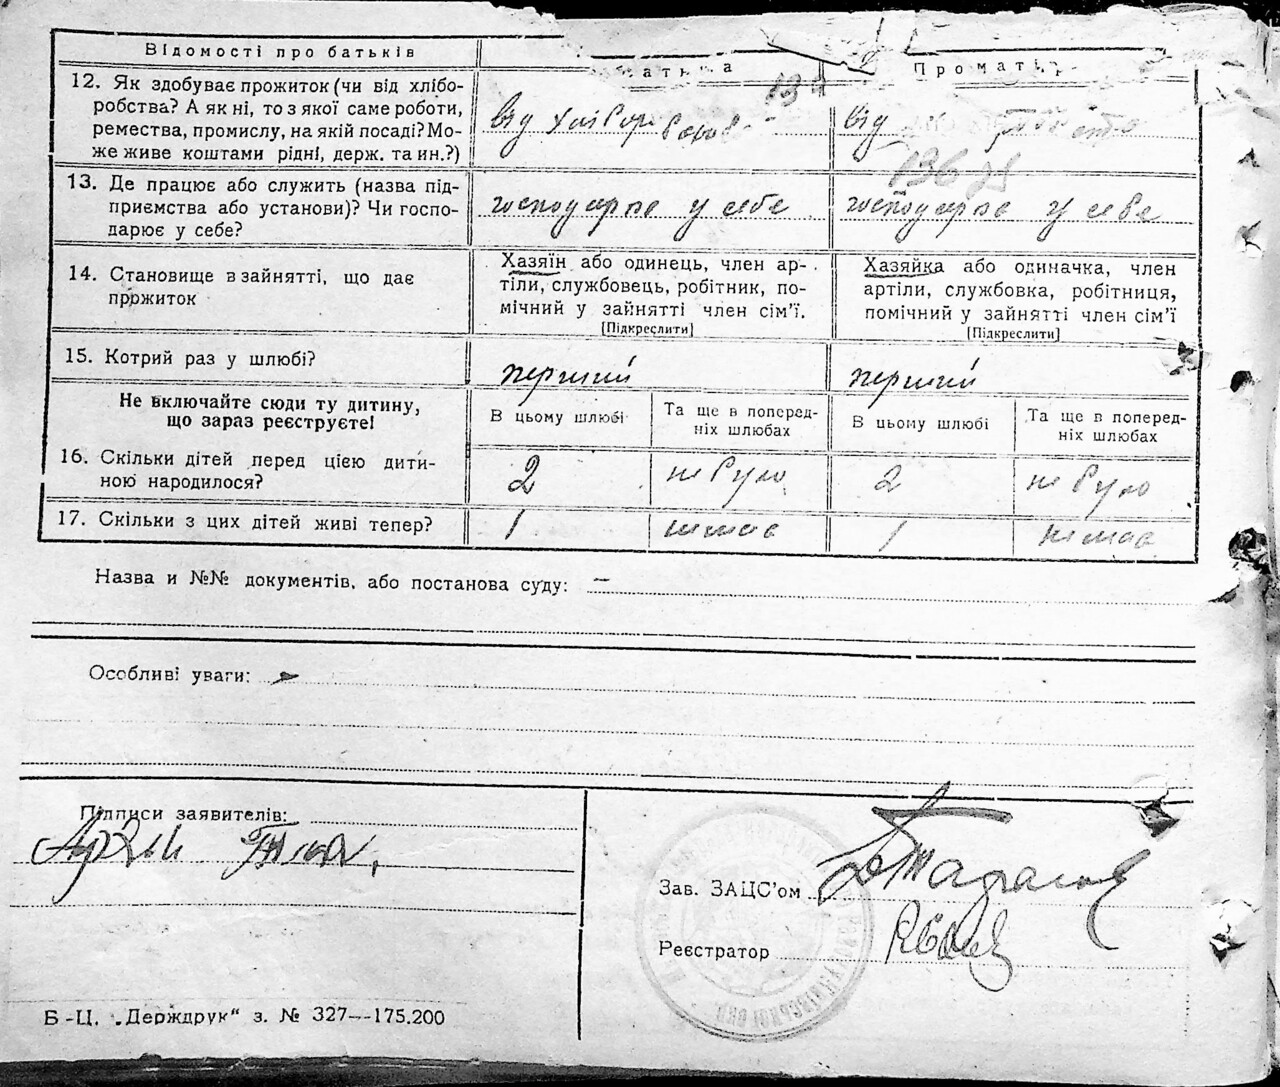 Відомості про батьків
Про матір
12. Як здобуває прожиток (чи від хлібо-
робства? А як ні, то з якої саме роботи,
ремества, промислу, на якій посаді? Мо-
же живе коштами рідні, держ. та ин.?)
від
від
136
13. Де працює або служить (назва під-
приємства або установи)? Чи госпо-
дарює у себе?
господарює у себе
господарює у себе
14. Становище в зайнятті, що дає
прожиток
Хазяїн або одинець, член ар-
тіли, службовець, робітник, по-
мічний у зайнятті член сім'ї.
[Підкреслити]
Хазяйка або одиначка, член
артіли, службовка, робітниця,
помічний у зайнятті член сім'ї
[Підкреслити]
15. Котрий раз у шлюбі?
перший
перший
Не включайте сюди ту дитину,
що зараз реєструєте!
В цьому шлюбі
Та ще в поперед-
ніх шлюбах
В цьому шлюбі
Та ще в поперед-
ніх шлюбах
16. Скільки дітей перед цією дити-
ною народилося?
2
не було
2
не було
17. Скільки з цих дітей живі тепер?
1
немає
1
немає
Назва и №№ документів, або постанова суду: —
Особливі уваги:
Підписи заявителів:
Зав. ЗАЦС'ом
Тарасов
Реєстратор
Б-Ц. „Держдрук“ з. № 327—175.200